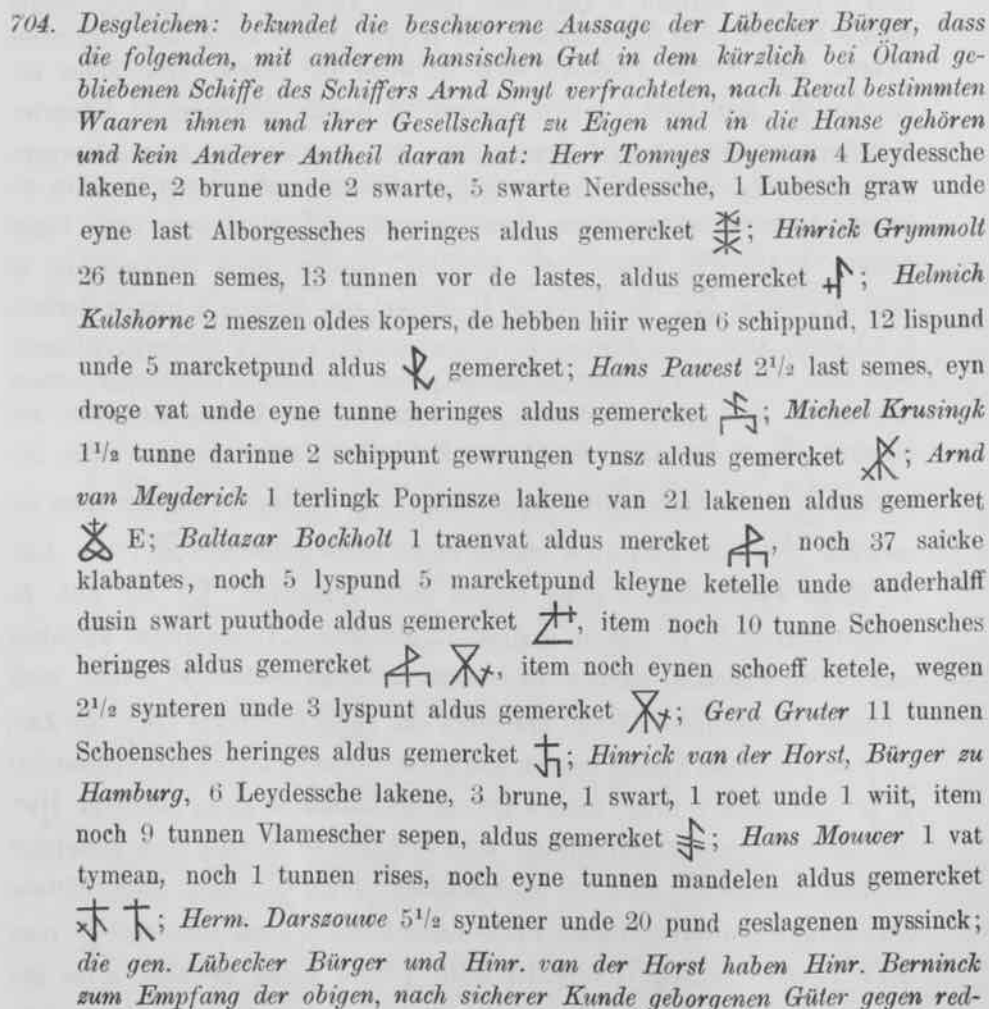 704. Desgleichen: bekundet die beschworene Aussage der Lübecker Bürger, dass
die folgenden, mit anderem hansischen Gut in dem kürzlich bei Öland ge-
bliebenen Schiffe des Schiffers Arnd Smyt verfrachteten, nach Reval bestimmten
Waaren ihnen und ihrer Gesellschaft zu Eigen und in die Hanse gehören
und kein Anderer Antheil daran hat: Herr Tonnyes Dyeman 4 Leydessche
lakene, 2 brune unde 2 swarte, 5 swarte Nerdessche, 1 Lubesch graw unde
eyne last Alborgessches heringes aldus gemercket ; Hinrick Grymmolt
26 tunnen semes, 13 tunnen vor de lastes, aldus gemercket ; Helmich
Kulshorne 2 meszen oldes kopers, de hebben hiir wegen 6 schippund, 12 lispund
unde 5 marcketpund aldus gemercket; Hans Pawest 2¹/₂ last semes, eyn
droge vat unde eyne tunne heringes aldus gemercket ; Micheel Krusingk
1¹/₂ tunne darinne 2 schippunt gewrungen tynsz aldus gemercket ; Arnd
van Meyderick 1 terlingk Poprinsze lakene van 21 lakenen aldus gemerket
E; Baltazar Bockholt 1 traenvat aldus mercket , noch 37 saicke
klabantes, noch 5 lyspund 5 marcketpund kleyne ketelle unde anderhalff
dusin swart puuthode aldus gemercket , item noch 10 tunne Schoensches
heringes aldus gemercket , item noch eynen schoeff ketele, wegen
2¹/₂ synteren unde 3 lyspunt aldus gemercket ; Gerd Gruter 11 tunnen
Schoensches heringes aldus gemercket ; Hinrick van der Horst, Bürger zu
Hamburg, 6 Leydessche lakene, 3 brune, 1 swart, 1 roet unde 1 wiit, item
noch 9 tunnen Vlamescher sepen, aldus gemercket ; Hans Mouwer 1 vat
tymean, noch 1 tunnen rises, noch eyne tunnen mandelen aldus gemercket
; Herm. Darszouwe 5¹/₂ syntener unde 20 pund geslagenen myssinck;
die gen. Lübecker Bürger und Hinr. van der Horst haben Hinr. Berninck
zum Empfang der obigen, nach sicherer Kunde geborgenen Güter gegen red-